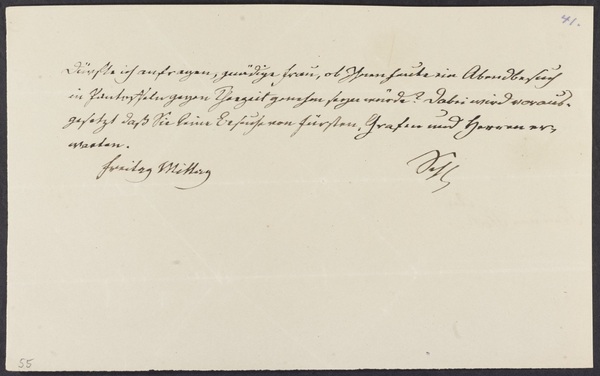 41.
Dürfte ich anfragen, gnädige Frau, ob Ihnen heute ein Abendbesuch
in Pantoffeln gegen Theezeit genehm seyn würde? Dabei wird voraus-
gesetzt daß Sie keine Besuche von Fürsten, Grafen und Herren er-
warten.
Freitag Mittag
Schl
55